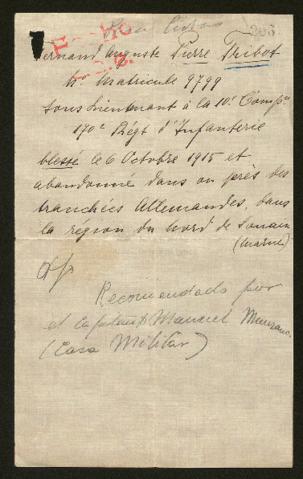 205
Fernand Auguste Pierre Tribot
Nº Matricule 9799
sous Lieutenant à la 10e Compgie
170e Régt d'Infanterie
blessé le 6 Octobre 1915 et
abandonné dans ou près des
tranchées Allemandes, dans
la région du Nord de Souain
(Marne)
Recomendado por
el capitan Manuel
(Casa Militar)